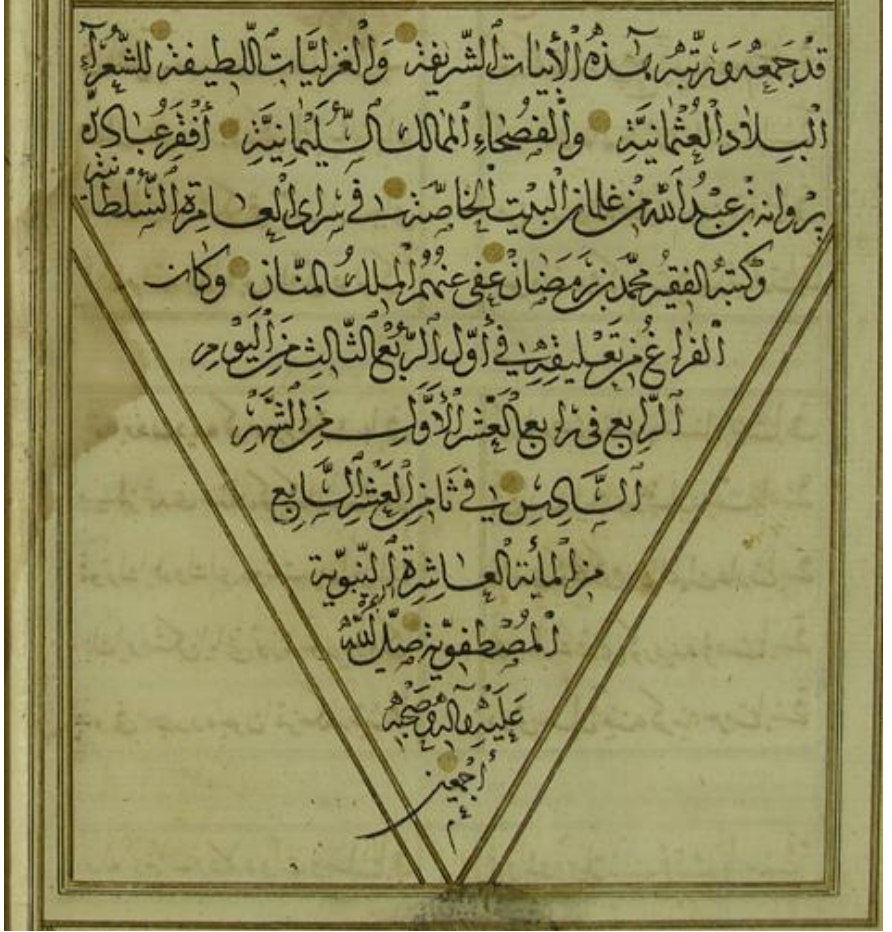 قَدْ جَمَعَهُ وَرَتَّبَهُ بِهٰذِهِ الْأَبْيَاتِ الشَّرِيفَةِ وَالْغَزَلِيَّاتِ اللَّطِيفَةِ لِلشُّعَرَاءِ
الْبِلَادِ الْعُثْمَانِيَّةِ وَالْفُصَحَاءِ الْمَمَالِكِ السُّلَيْمَانِيَّةِ أَفْقَرُ عِبَادِ اللّٰهِ
پروانه بن عَبْدُ اللّٰه مِنْ غلمان الْبَيْتِ الْخَاصَّةِ فِي سَرَاي الْعَامِرَةِ السُّلْطَانِيَّةِ
وَكَتَبَهُ الْفَقِيرُ مُحَمَّد بن رَمَضَانْ عُفِيَ عَنْهُمُ الْمَلِكُ الْمَنَّانِ وَكَانَ
الْفَرَاغُ مِنْ تَعْلِيقِهِ فِي أَوَّلِ الرُّبْعِ الثَّالِثِ مِنَ الْيَوْمِ
الرَّابِعِ فِي رَابِعِ الْعَشْرِ الْأَوَّلِ مِنَ الشَّهْرِ
السَّادِسِ فِي ثَامِنِ الْعَشْرِ السَّابِعِ
مِنَ الْمِائَةِ الْعَاشِرَةِ النَّبَوِيَّةِ
الْمُصْطَفَوِيَّةِ صَلَّى اللّٰهُ
عَلَيْهِ وَآلِهِ وَصَحْبِهِ
أَجْمَعِين
م